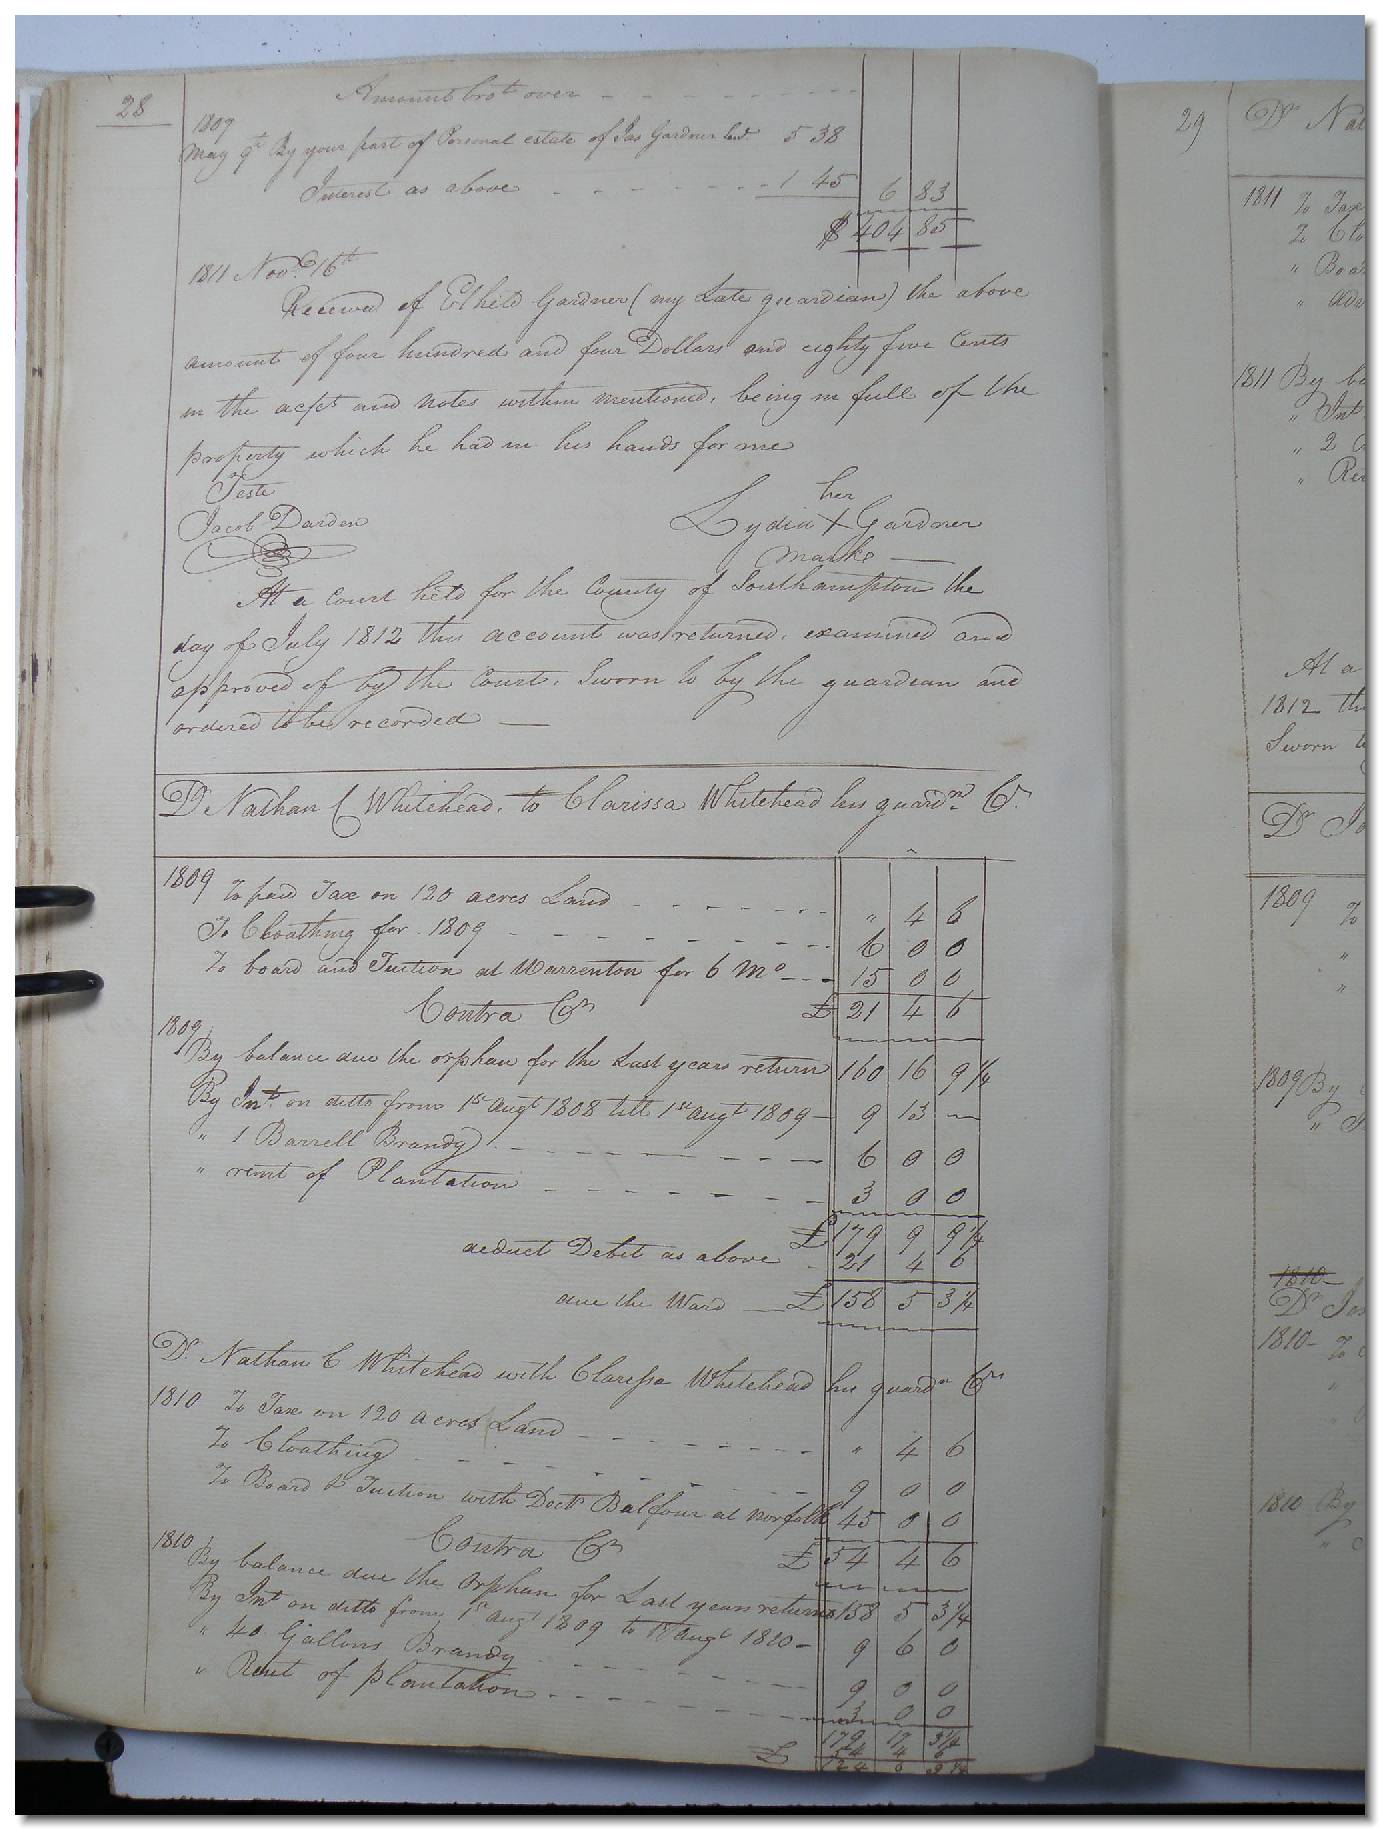 28
Amount brot over
1809
May 9th By your part of Personal estate of Jas Gardner decd 5 38
Interest as above 1 45 6 83
$ 404 85
1811 Novr 16th
Received of Elheld Gardner (my Late guardian) the above
amount of four hundred and four Dollars and eighty five Cents
in the acpt and notes within mentioned, being in full of the
property which he had in his hands for me
Teste
Jacob Darden
her
Lydia X Gardner
marke
At a Court held for the County of Southampton the
day of July 1812 this account was returned, examined and
approved of by the Court, Sworn to by the guardian and
ordered to be recorded
Dr Nathan C Whitehead, to Clarissa Whitehead his guardn Cr
1809 To paid Tax on 120 acres Land " 4 6
To Cloathing for 1809 6 0 0
To board and Tuition at Warrenton for 6 Mo 15 0 0
Contra Cr £ 21 4 6
1809
By balance due the orphan for the Last years return 160 16 9 1/4
By Int. on ditto from 1st Augt 1808 till 1st augt 1809 9 13 —
" 1 Barrell Brandy 6 0 0
" rent of Plantation 3 0 0
£ 179 9 9 1/4
deduct Debit as above 21 4 6
due the Ward £ 158 5 3 1/4
Dr Nathan C Whitehead with Claressa Whitehead his guardn Cr
1810 To Tax on 120 acres Land " 4 6
To Cloathing 9 0 0
To Board & Tuition with Doctr Balfour at Norfolk 45 0 0
Contra Cr £ 54 4 6
1810
By balance due the Orphan for Last years return 158 5 3 1/4
By Int on ditto from 1st augt 1809 to 1st augt 1810 9 6 0
" 40 Gallons Brandy 9 0 0
" Rent of plantation 3 0 0
179 17 3 1/4
54 4 6
£
29
Dr Nat
1811 To Tax
To Clo
" Boar
1811 By
" Int
" 2
At a
1812 th
Sworn t
Dr Jo
1809 To
1809 By
1810
Dr Jos
1810 To
1810 By